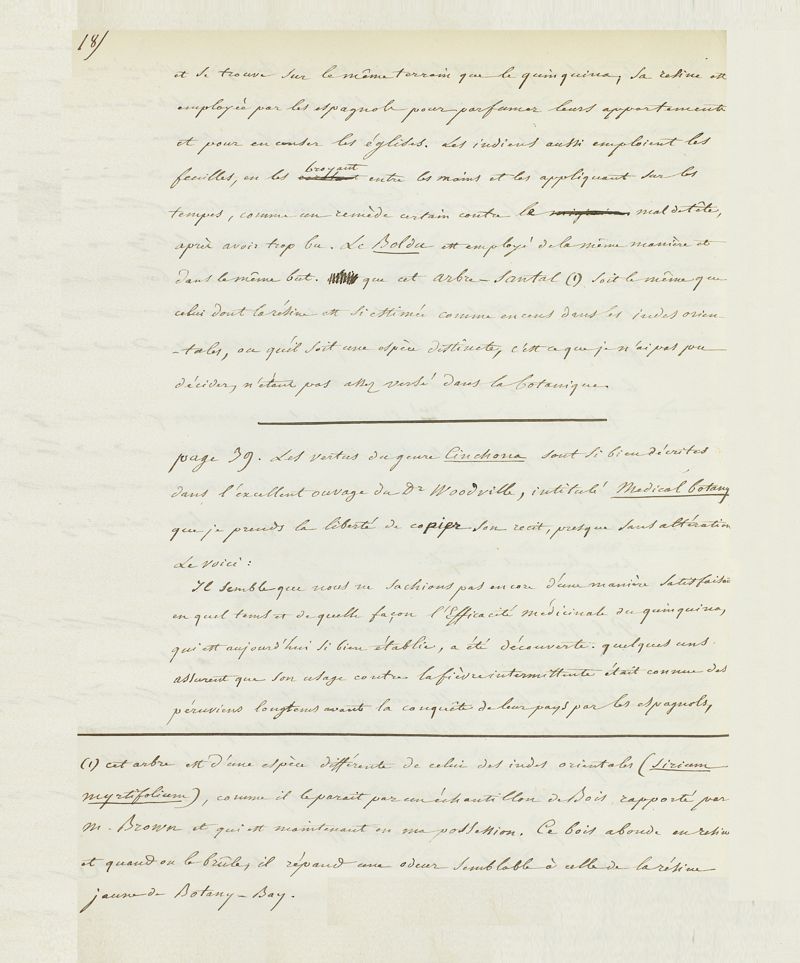 18)
et se trouve sur le même terrein que le quinquina, sa resine est
employée par les espagnols pour parfumer leurs appartements
et pour encenser les églises. Les indiens aussi emploient les
feuilles, en les broyant entre les mains et les appliquant sur les
tempes, comme un remède certain contre le mal de tête,
après avoir trop bu. Le Boldu est employé de la même manière et
dans le même but. que cet arbre-Santal (1) soit le même que
celui dont la résine est si estimée comme encens dans les indes orien-
-tales, ou qu'il soit une espèce distincte, c'est ce que je n'ai pas pu
décider, n'étant pas assez versé dans la botanique.
page 39. Les vertus du genre Cinchona sont si bien décrites
dans l'excellent ouvage du Dr Woodville, intitulé Medical botany
que je prends la liberté de copier son recit, presque sans altération
Le voici :
Il semble que nous ne sachions pas encore d'une manière satisfaisan
en quel tems et de quelle façon l'Efficacité médicinale du quinquina,
qui est aujourd'hui si bien établie, a été découverte. quelques uns
assurent que son usage contre la fièvre intermittente était connue des
péruviens longtems avant la conquête de leur pays par les espagnols,
(1) cet arbre est d'une espèce différente de celui des indes orientales (Sirium
myrtifolium), comme il le parait par un échantillon de Bois rapporté par
M. Brown et qui est maintenant en ma possession. Ce bois abonde en resin
et quand on le brûle, il répand une odeur semblable à celle de la résine
jaune de Botany-Bay.